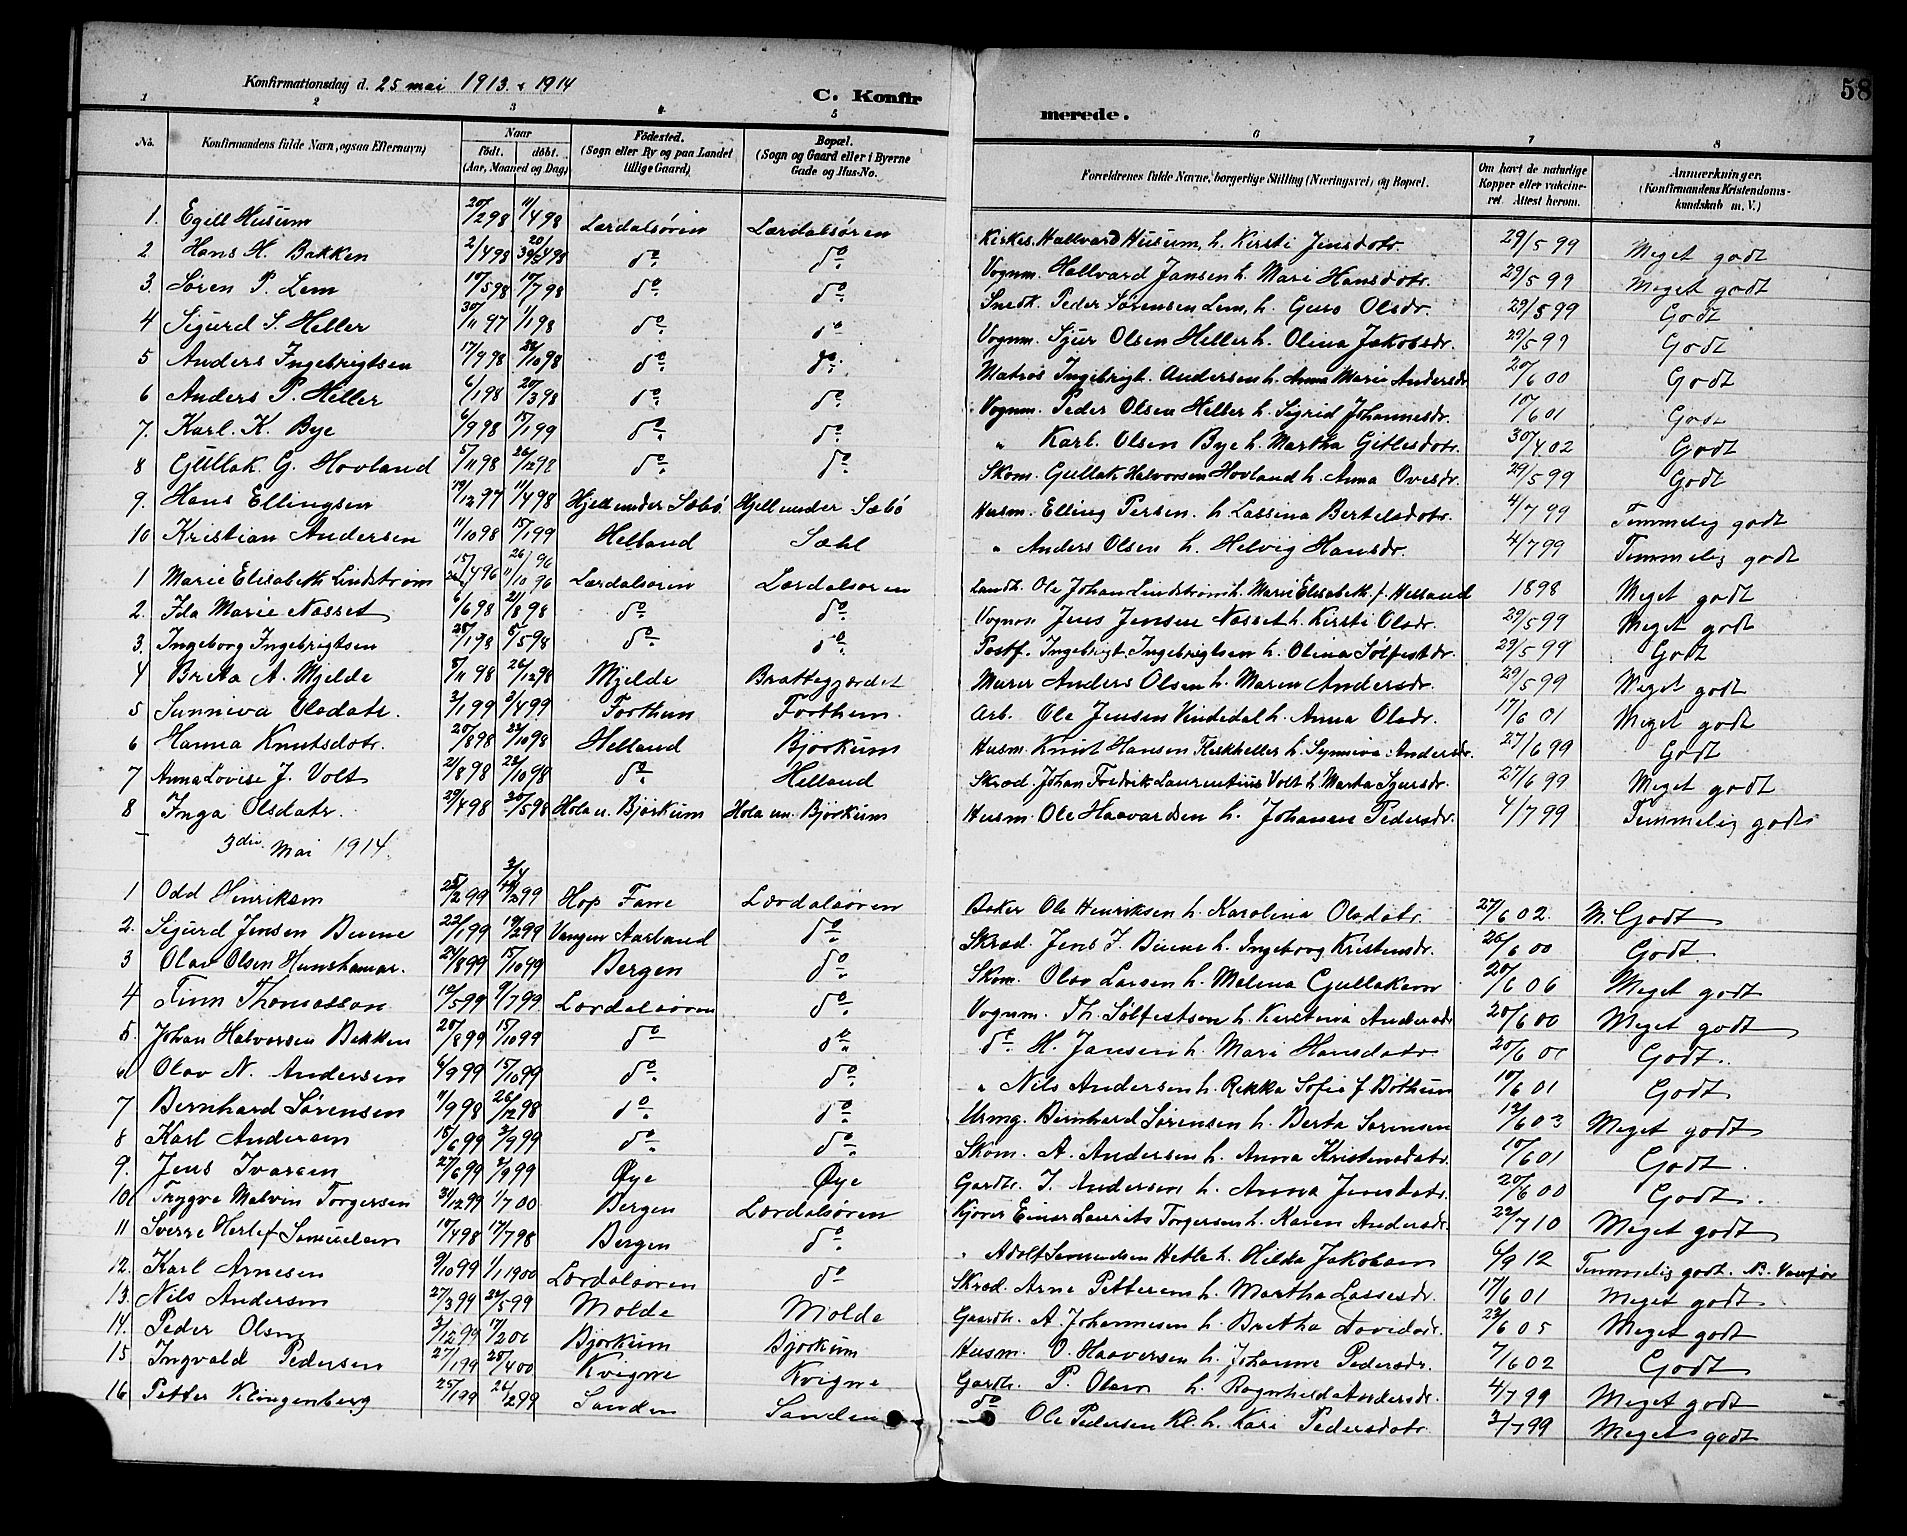 Konfirmationsdag d. 25 mai 1913 & 1914
C. Konfir merede. 58
1 2 3 4 5 6 7 8
No. Konfirmandens fulde Navn, ogsaa Efternavn) Naar født. døbt. (Aar, Maaned og Dag) Fødested. (Sogn eller By og paa Landet tillige Gaard) Bopæl. (Sogn og Gaard eller i Byerne Gade og Hus-No. Forældrenes fulde Navne, borgerlige Stilling (Næringsvei) og Bopæl. Om havt de naturlige Kopper eller vaccineret. Attest herom. Anmærkninger. (Konfirmandens Kristendomskundskab m. V.)
1. Egill Husum 20/2 98 11/4 98 Lærdalsøren Lærdalsøren Kirkes. Hallvard Husum, h. Kirsti Jensdotr. 29/5 99 Meget godt
2 Hans H. Bakken 2/4 98 20/4 98 do do Vognm. Hallvard Jansen h. Mari Hansdotr. 29/5 99 Meget godt
3. Søren P. Lem 10/5 98 10/7 98 do do Snedk. Peder Sørensen Lem, h. Guro Olsdr. 29/5 99 Godt
4 Sigurd S. Heller 30/11 97 1/1 98 do do Vognm. Sjur Olsen Heller h. Olina Jakobsdr. 29/5 99 Godt
5 Anders Ingebrigtsen 17/9 98 22/10 98 do do Matros Ingebrigt Andersen h. Anna Marie Andersdr 20/6 00 Godt
6 Anders P. Heller 6/1 98 20/3 98 do do Vognm. Peder Olsen Heller h. Sigrid Johannesdr. 10/6 01 Godt
7. Karl. K. Bye 6/9 98 15/1 99 do do " Karl Olsen Bye h. Martha Gitlesdotr. 30/4 02 Godt
8 Gullak G. Hovland 5/11 98 26/12 98 do do Skom. Gullak Halvorsen Hovland h. Anna Ovesdr. 29/5 99 Godt
9. Hans Ellingsen 19/12 97 11/4 98 Hjell under Sæbø Hjell under Sæbø Husm. Elling Persen h. Lassina Bertelsdotr. 4/7 99 Temmelig godt
10 Kristian Andersen 11/10 98 15/1 99 Helland Sæhl " Anders Olsen h. Helvig Hansdr. 4/7 99 Temmelig godt
1 Marie Elisabeth Lindstrøm 15/4 96 11/10 96 Lærdalsøren Lærdalsøren Landh. Ole Johan Lindstrøm h. Marie Elisabeth f. Helland 1898 Meget godt
2. Ida Marie Nasset 6/6 98 21/8 98 do do Vognm. Jens Jensen Nasset h. Kirsti Olsdr. 29/5 99 Meget godt
3. Ingeborg Ingebrigtsen 25/1 98 5/5 98 do do Postf. Ingebrigt Ingebrigtsen h. Olina Sølfestdr. 29/5 99 Godt
4 Brita A. Mjelde 5/11 98 26/12 98 Mjelde Brattegjærdet Murer Anders Olsen h. Maren Andersdr. 29/5 99 Meget godt
5 Sunniva Olsdatr. 3/1 99 2/4 99 Forthun Forthun. Arb. Ole Jensen Vindedal h. Anna Olsdr. 17/6 01 Meget godt
6 Hanna Knutsdotr. 20/8 98 23/10 98 Helland Bjørkum Husm. Knut Hansen Fleskheller h. Synneva Andersdr. 27/6 99 Godt
7 Anna Lovise J. Volt 21/8 98 23/10 98 do Helland Skræd. Johan Fredrik Laurentius Volt h. Marta Sjursdr. 27/6 99 Meget godt
8 Inga Olsdatr. 29/4 98 30/5 98 Hola u. Bjørkum Hola un. Bjørkum Husm. Ole Haavardsen h. Johanne Pedersdr. 4/7 99 Temmelig godt
3die Mai 1914.
1 Odd Henriksen 25/2 99 3/4 99 Hop Fane Lærdalsøren Baker Ole Henriksen h. Karolina Olsdatr. 27/6 02. M. Godt
2. Sigurd Jensen Buene 22/1 99 19/2 99 Vangen Aurland do Skræd. Jens J. Buene h. Ingeborg Kristensdr. 26/6 00 Godt
3 Olav Olsen Hunshamar. 24/8 99 15/10 99 Bergen do Skom. Olav Larsen h. Malena Gullaksen 20/6 06 Meget godt
4 Finn Thomassen 10/5 99 9/7 99 Lærdalsøren do Vognm. Th. Sølfestsen h. Kristina Andersdr 20/6 00 Meget godt
5. Johan Halvorsen Bakken 20/8 99 15/10 99 do do do H. Jansen h. Mari Hansdatr 20/6 01 Godt.
6. Olav N. Andersen 6/9 99 15/10 99 do do " Nils Andersen h. Rekka Sofie f Bøthun 10/6 01 Godt
7 Bernhard Sørensen 11/9 98 26/12 98 do do Urmg. Bernhard Sørensen h. Berta Sørensen 12/6 03 Meget godt
8 Karl Andersen 15/6 99 3/9 99 do do Skom. A. Andersen h. Anna Kristensdatr. 10/6 01 Godt.
9. Jens Ivarsen 27/6 99 2/9 99 Øye Øye Gardbr. I. Andersen h. Anna Jensdatr. 20/6 00 Godt.
10. Trygve Malvin Torgersen 31/12 99 1/7 00 Bergen Lærdalsøren Kjører Einar Laurits Torgersen h. Karen Andersdr 22/7 10 Meget godt
11 Sverre Herlef Samuelsen 10/4 98 17/7 98 Bergen do " Adolf Samuelsen Hetle h. Hilda Jakobsen 6/9 12 Temmelig godt.
12. Karl Arnesen 9/10 99 1/1 1900 Lærdalsøren do Skræd. Arne Pettersen h. Martha Lassesdr. 17/6 01 Meget godt
13. Nils Andersen 27/3 99 22/5 99 Molde Molde Gaardbr. A. Johannesen h. Bretha Davidsdr. 23/6 05 Meget godt
14. Peder Olsen 3/12 99 17/2 00 Bjørkum Bjørkum Husm. O. Haaversen h. Johanne Pedersdr. 7/6 02 Godt
15 Ingvald Pedersen 27/1 99 20/4 00 Kvigne Kvigne Gardbr. P. Olsen h. Ragnhilda Andersdr. 4/7 99 Meget godt
16 Petter Klingenberg 25/1 99 26/2 99 Sanden Sanden do Ole Pedersen Kl. h. Kari Pedersdotr 3/7 99 Meget godt